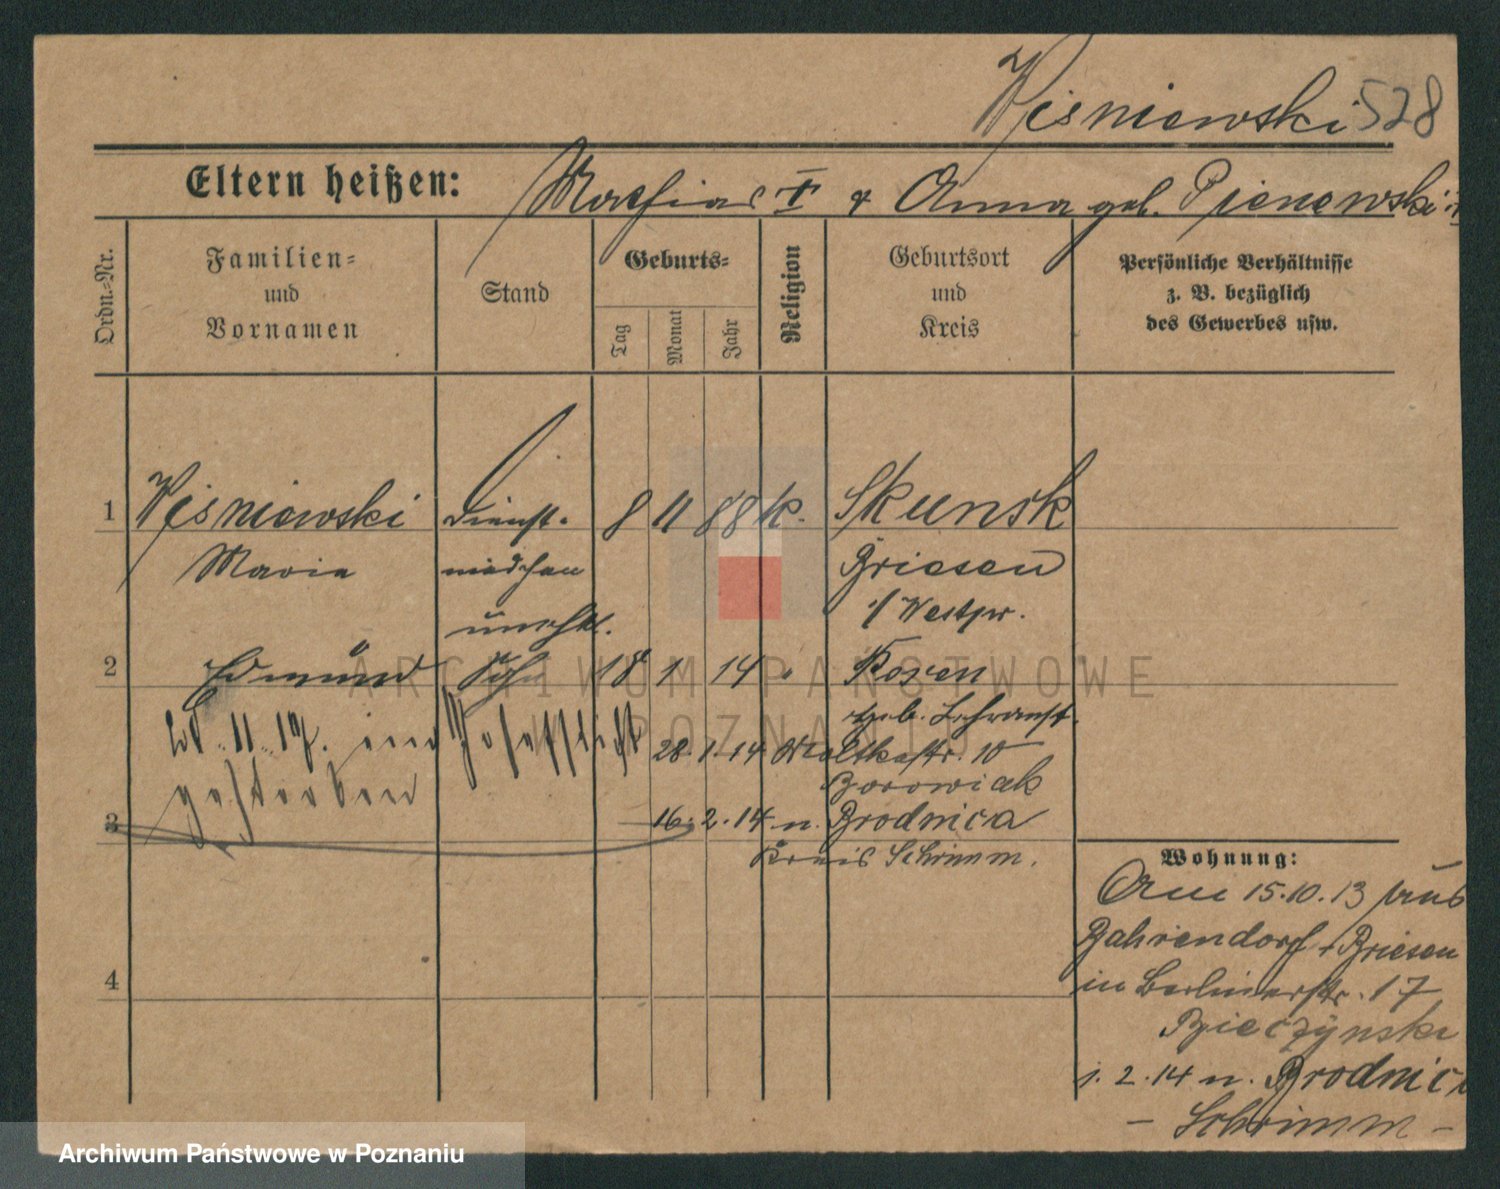 Wisniewski 528
Eltern heißen: Mathias I & Anna geb. Pienewski
Ordn.-Nr.
Familien-
und
Vornamen
Stand
Geburts-
Tag
Monat
Jahr
Religion
Geburtsort
und
Kreis
Persönliche Verhältnisse
z. B. bezüglich
des Gewerbes usw.
1 Wisniewski Dienst- 8 11 88 k. Skunsk
Maria mädchen Briesen
i/Westpr.
unehl.
2 Edmund Sohn 18 1 14 " Posen
Heb. Lehranst.
28.1.14 10
Borowiak
gestorben
3 16.2.14 n. Brodnica
Kreis Schrimm.
4
Wohnung:
Am 15.10.13 aus
Bahrendorf Briesen
in Berlinerstr. 17
Bieczynski
1.2.14 n. Brodnica
- Schrimm -
ARCHIWUM PAŃSTWOWE
W POZNANIU
Archiwum Państwowe w Poznaniu